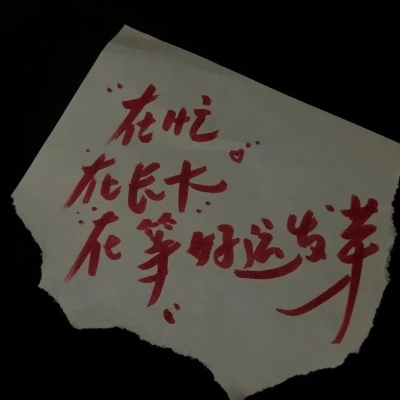 “在忙”
“在长大”
“在等好运发芽”